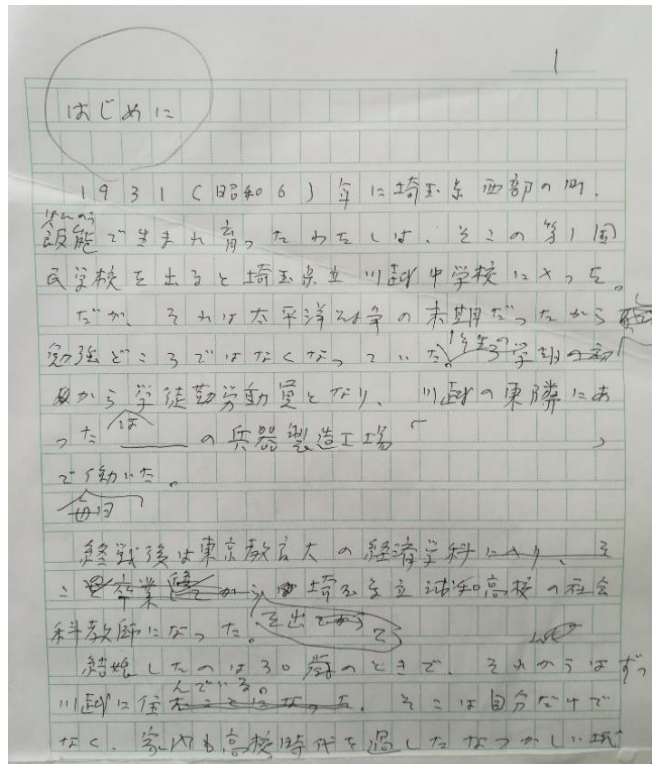 1
はじめに
1931(昭和6)年に埼玉県西部の町、
はんのう
飯能で生まれ育ったわたしは、そこの第1国
民学校を出ると埼玉県立川越中学校に入った。
だが、それは太平洋戦争の末期だったから
勉強どころではなくなっていた。1年生の3学期の
から学徒勤労動員となり、川越の東隣にあ
った の兵器製造工場「 」
で働いた。
毎日
終戦後は東京教育大の経済学科に入り、そ
こ 卒業 埼玉県立浦和高校の社会
科教師になった。を出て
結婚したのは30歳のときで、それからはずっ
んでいる。
川越に住 そこは自分だけで
なく、家内も高校時代を過したなつかしい城